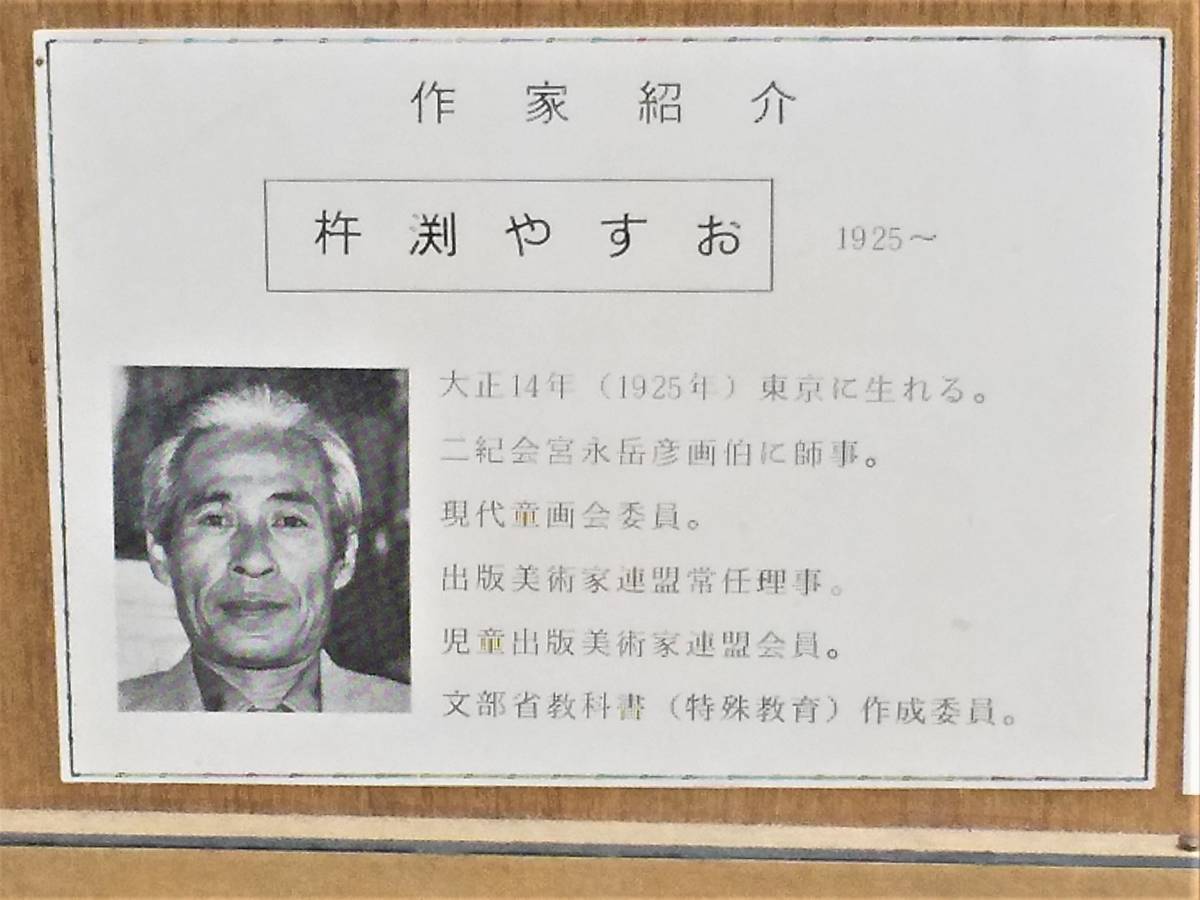 作家紹介
杵渕やすお 1925～
大正14年（1925年）東京に生れる。
二紀会宮永岳彦画伯に師事。
現代童画会委員。
出版美術家連盟常任理事。
児童出版美術家連盟会員。
文部省教科書（特殊教育）作成委員。